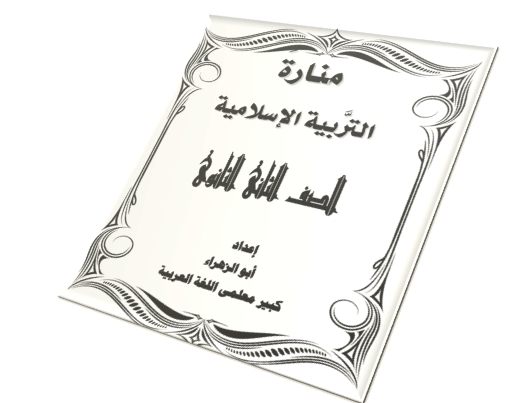 منارة
التَّربية الإسلامية
الصف الثانى الثانوى
إعداد
أبو الزهراء
كبير معلمى اللغة العربية